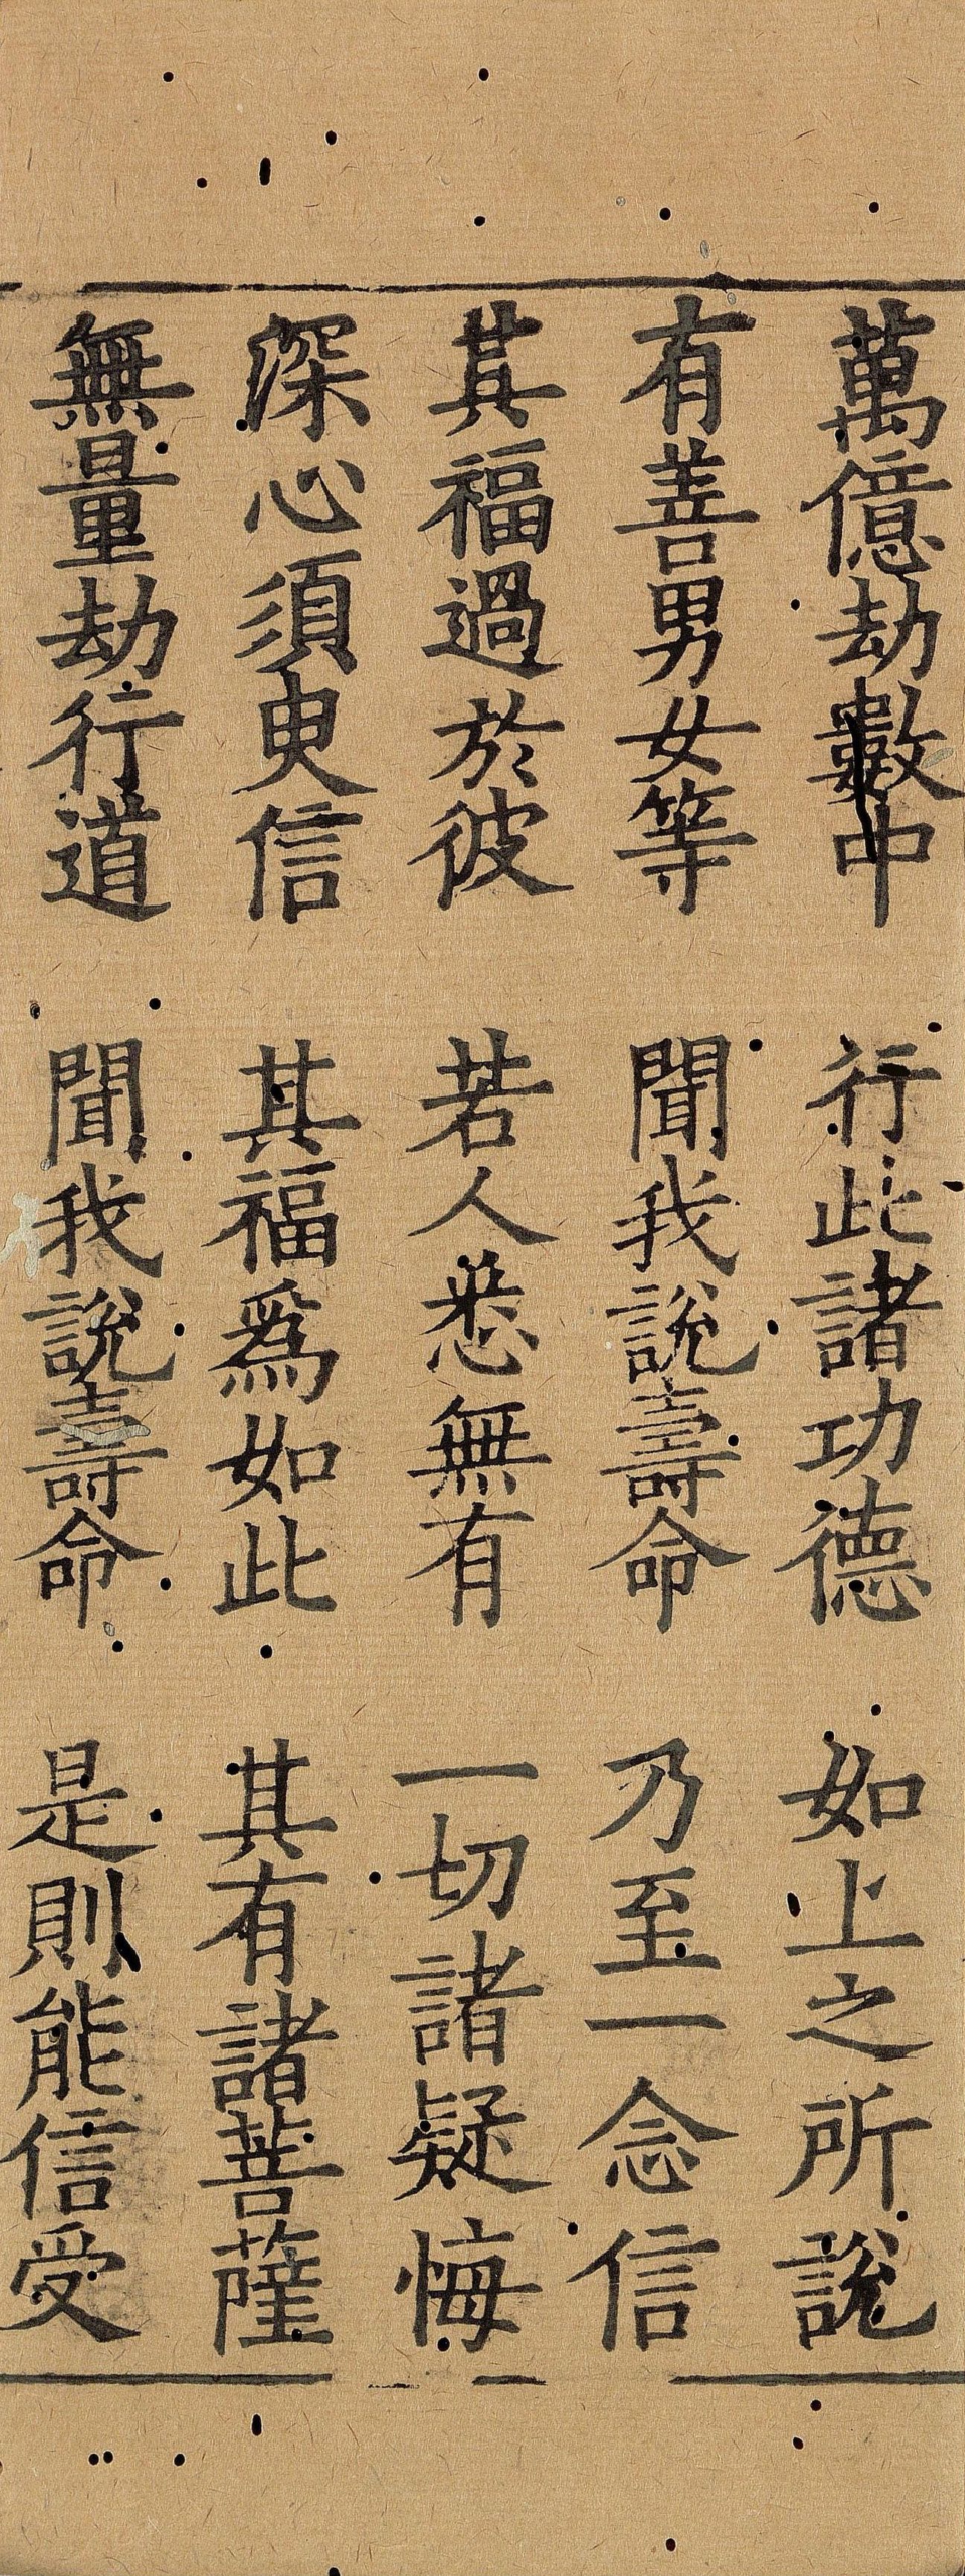 萬億劫數中　行此諸功德　如上之所說
有善男女等　聞我說壽命　乃至一念信
其福過於彼　若人悉無有　一切諸疑悔
深心須臾信　其福爲如此　其有諸菩薩
無量劫行道　聞我說壽命　是則能信受